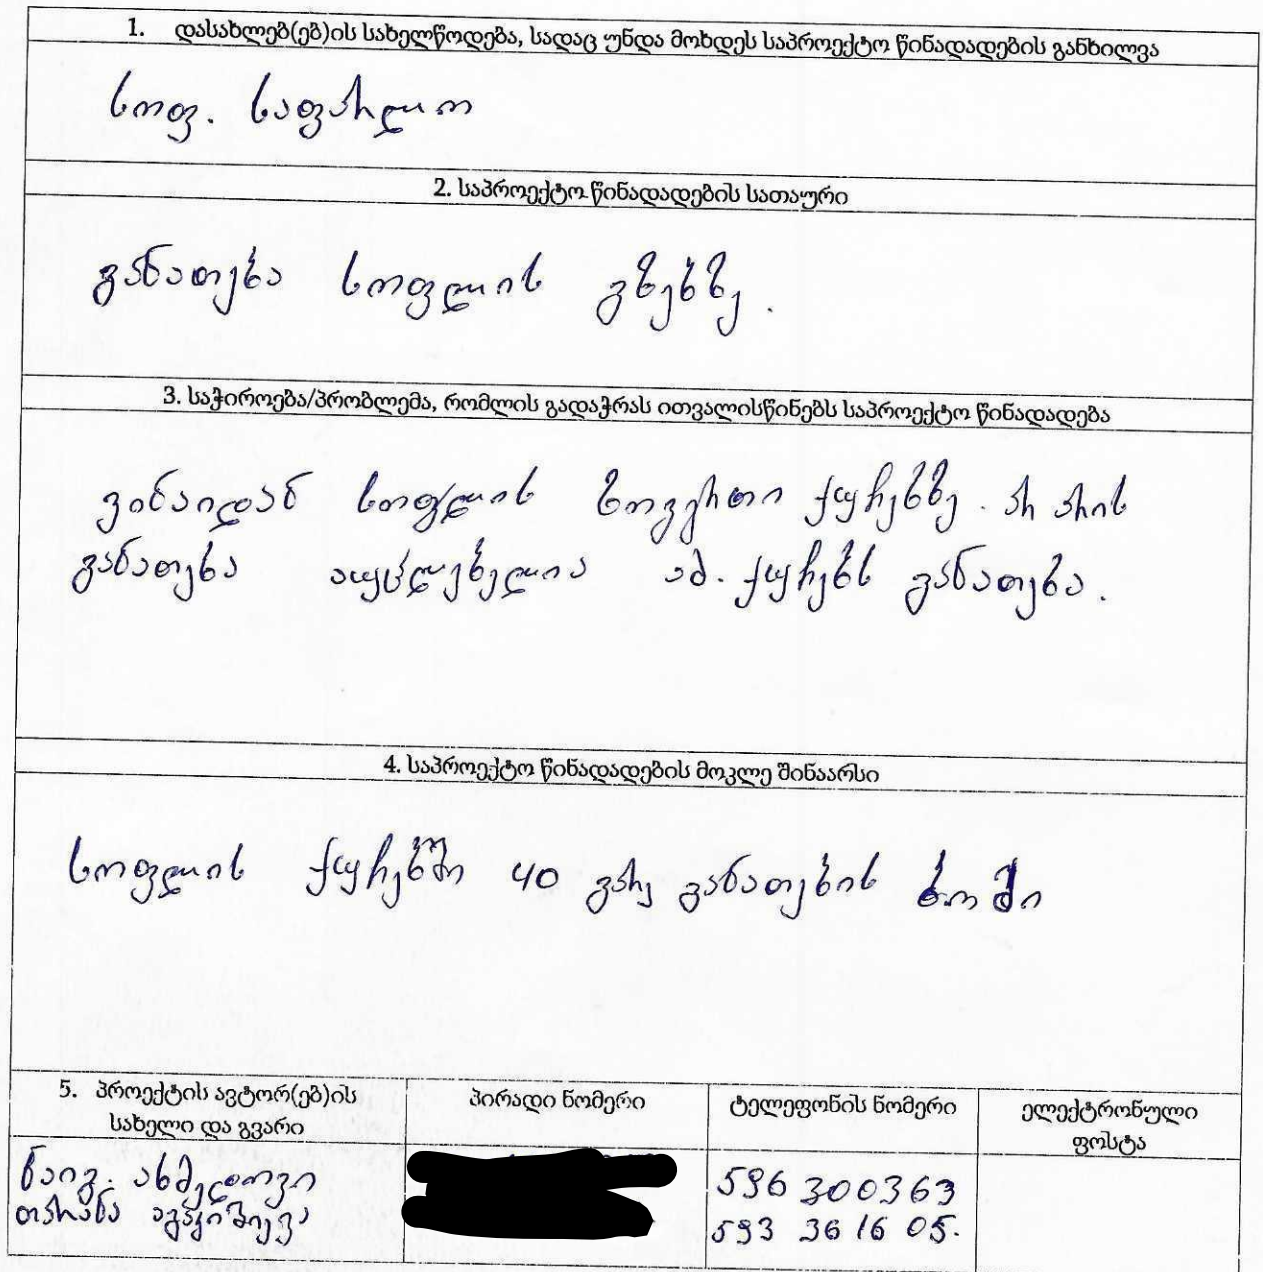 1. დასახლებ(ებ)ის სახელწოდება, სადაც უნდა მოხდეს საპროექტო წინადადების განხილვა
სოფ. საფარლო
2. საპროექტო წინადადების სათაური
განათება სოფლის გზებზე.
3. საჭიროება/პრობლემა, რომლის გადაჭრას ითვალისწინებს საპროექტო წინადადება
ვინაიდან სოფლის ზოგერთი ქუჩებზე. არ არის
განათება აუცლებელია ამ. ქუჩებს განათება.
4. საპროექტო წინადადების მოკლე შინაარსი
სოფლის ქუჩებში 40 გარე განათების
5. პროექტის ავტორ(ებ)ის სახელი და გვარი
პირადი ნომერი
ტელეფონის ნომერი
ელექტრონული ფოსტა
ახმედოვი 596 300363
თარანა 593 36 16 05.